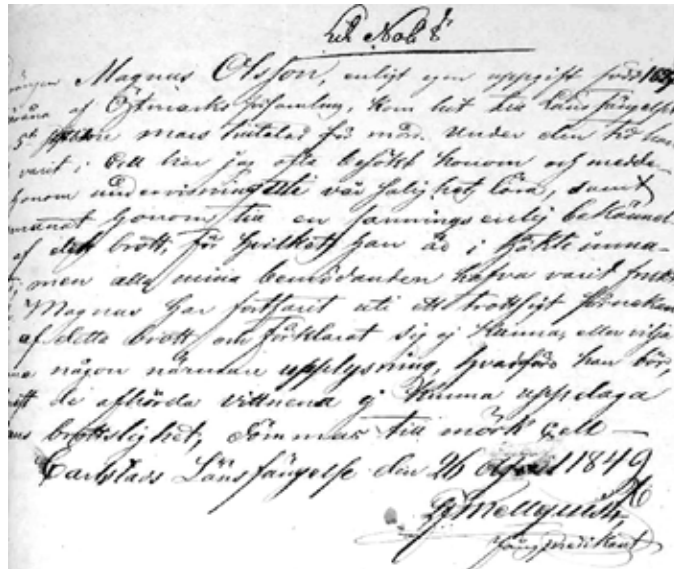 Litt Nob 8
Magnus Olsson, enligt egen uppgift född
af Östmarks församling, kom hit till Länsfängelset
5te mars tilltalad för mord. Under den tid han
varit i Cell har jag ofta besökt honom och medde-
honom undervisning uti vår salighets lära, samt
manat honom till en sanningsenlig bekännel-
af det brott, för hvilket han är i häkte inma-
men alla mina bemödanden hafva varit
Magnus har fortfarit uti ett trotsigt förnekan
af detta brott och förklarat sig ej kunna eller vilja
någon närmare upplysning, hvarföre han bör,
de afhörda vittnena ej kunna uppdaga
brottslighet, dömmas till mörk cell —
Carlstads Länsfängelse den 26 April 1849
Fängpredikant